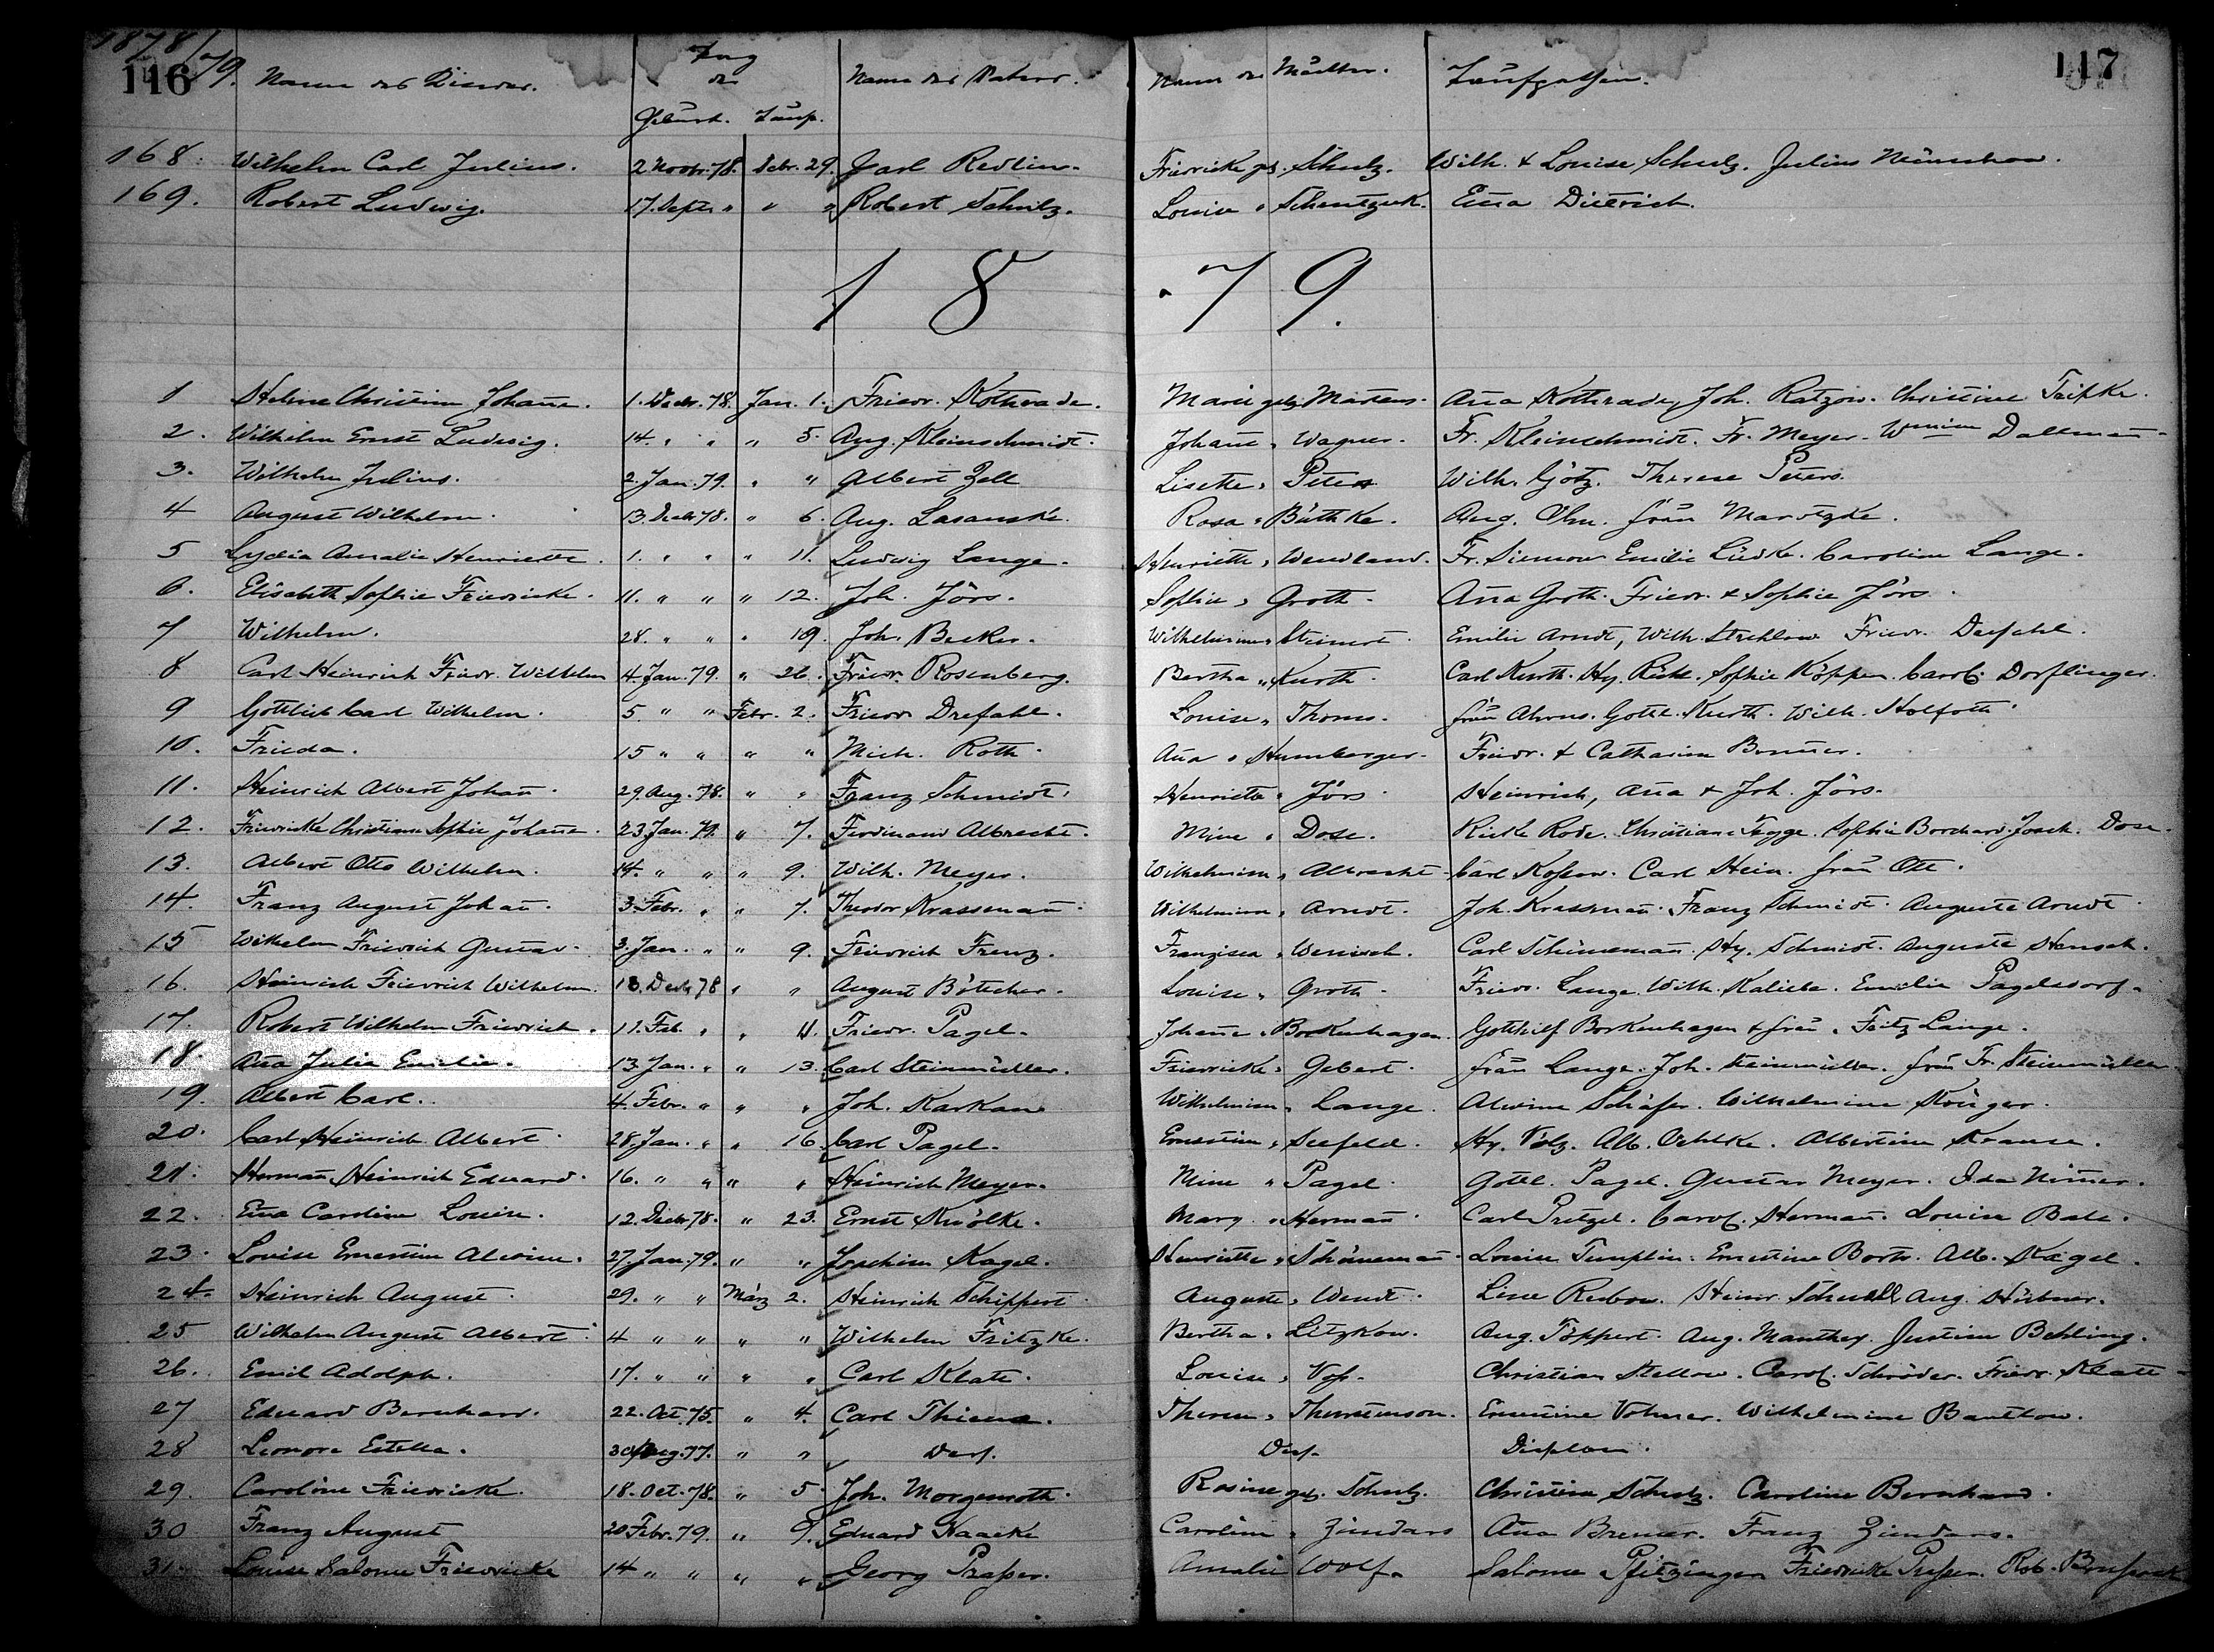 1878/79.
116 Name des Kindes. Tag der Geburt. Taufe. Name des Vaters. Name der Mutter. Taufpathen. 117
168. Wilhelm Carl Julius. 2 Novbr. 78. Debr. 29. Carl Redlin. Friedricke geb. Schulz. Wilh. & Louise Schulz. Julius Münchow.
169. Robert Ludwig. 17. Septr " " " Robert Schulz. Louise " Em̄a Dietrich.
1879.
1 Helene Christine Johan̄e. 1. Decbr. 78. Jan. 1. Friedr. Kothrade. Marie geb. Martens. An̄a Kothrade, Joh. Ratzow. Christine Tripke.
2. Wilhelm Ernst Ludwig. 14. " " " 5. Aug. Kleinschmidt. Johan̄e " Wagner. Fr. Kleinschmidt. Fr. Meyer. Wmine Dallman̄.
3. Wilhelm Julius. 2. Jan. 79. " " Albert Zell Lisette " Peters Wilh. Götz. Therese Peters.
4 August Wilhelm. 13. Decbr 78. " 6. Aug. Lasanske. Rosa " Büthke. Aug. Ohm. Frau Marotzke.
5 Lydia Amalie Henriette. 1. " " " 11. Ludwig Lange. Henriette " Wendland. Fr. Siemow Emilie Lüdke. Caroline Lange.
6. Elisabeth Sophie Friedricke. 11. " " " 12. Joh. Jörs. Sophie " Groth. An̄a Groth. Friedr. & Sophie Jörs.
7 Wilhelm. 28. " " " 19. Joh. Becker. Wilhelmine " Steinert. Emilie Arndt, Wilh. Strehlow Friedr. Drefahl.
8 Carl Heinrich Friedr. Wilhelm 4. Jan. 79. " 26. Friedr. Rosenberg. Bertha " Kurth. Carl Kurth. Hy. Sophie Köppen. Carol. Dorflinger.
9 Gottlieb Carl Wilhelm. 5 " " Febr. 2. Friedr Drefahl. Louise " Thoms. Frau Ahrens. Gottl. Kurth. Wilh. Holfoth.
10. Frieda. 15 " " " " Mich. Roth. An̄a " Humberger. Friedr. & Catharina
11. Heinrich Albert Johan̄. 29. Aug. 78. " " Franz Schmidt. Henriette " Jörs. Heinrich, An̄a & Joh. Jörs.
12. Friedricke Christiane Sophie Johan̄e. 23 Jan. 79. " 7. Ferdinand Albrecht. Mine " Dose. Rode. Christian Sophie Borchard. Joach. Dose.
13. Albert Otto Wilhelm. 14. " " " 9. Wilh. Meyer. Wilhelmine " Albrecht. Carl Carl Hein. Frau Ott.
14. Franz August Johan̄. 3. Febr. " " 7. Theodor Krassman̄. Wilhelmine " Arndt. Joh. Krassman̄. Franz Schmidt. Auguste Arndt.
15 Wilhelm Friedrich Gustav. 3. Jan. " " 9. Friedrich Frenz. Franzisca " Wenisch. Carl Schüneman̄. Hy. Schmidt. Auguste Hensch.
16. Heinrich Friedrich Wilhelm. 18. Decbr 78 " " August Böttcher. Louise " Groth. Friedr. Lange. Wilh. Kaliebe. Emilie Pagelsdorf.
17. Robert Wilhelm Friedrich. 11. Feb. " " 11. Friedr. Pagel. Johan̄e " Borkenhagen. Gotthilf Borkenhagen & Frau. Fritz Lange.
18. An̄a Julia Emilie. 13. Jan. " " 13. Carl Steinmüller. Friedricke " Gebert. Frau Lange. Joh. Steinmüller. Frau Fr. Steinmüller
19. Albert Carl. 4. Febr. " " " Joh. Karkau Wilhelmine " Lange. Alwine Schäfer. Wilhelmine Krüger.
20. Carl Heinrich Albert. 28. Jan. " " 16. Carl Pagel. Ernestine " Seefeld. Hy. Volz. Alb. Oehlke. Albertine Krause.
21. Herman̄ Heinrich Eduard. 16. " " " " Heinrich Meyer. Mine " Pagel. Gottl. Pagel. Gustav Meyer. Ida
22. Em̄a Caroline Louise. 12. Decbr 78. " 23. Ernst Knölke. Marg. " Herman̄. Carl Pretzel. Carol. Herman̄. Louise
23. Louise Ernestine Alwine. 27. Jan. 79. " " Joachim Kagel. Henriette " Schöneman̄. Louise Templin. Ernestine Alb. Kagel.
24. Heinrich August. 29. " " März 2. Heinrich Schippert. Auguste " Wendt. Line Rubow. Heinr. Schnell Aug. Hübner.
25 Wilhelm August Albert. 4 " " " " Wilhelm Fritzke. Bertha " Litzkow. Aug. Töppert. Aug. Manthey. Justine Behling.
26. Emil Adolph. 17. " " " " Carl Klatt. Louise " Voß. Christian Stellow. Carol. Schröder. Friedr. Klatt
27 Eduard Bernhard. 22. Oct. 75. " 4. Carl Therese " Ernestine Volmer. Wilhelmine
28 Leonore Estella. 30 Aug. 77. " " Ders. Dies. Dieselben.
29. Caroline Friedricke. 18. Oct. 78. " 5. Joh. Morgenroth. Rosine geb. Schulz. Christine Schulz. Caroline Bernhard.
30 Franz August 20 Febr. 79. " 9. Eduard Haacke Caroline " Zündars An̄a Bremer. Franz Zündars.
31. Louise Salome Friedricke 14 " " " " Georg Praßer. Amalie Wolf. Salome Pfitzinger Friedricke Rob.